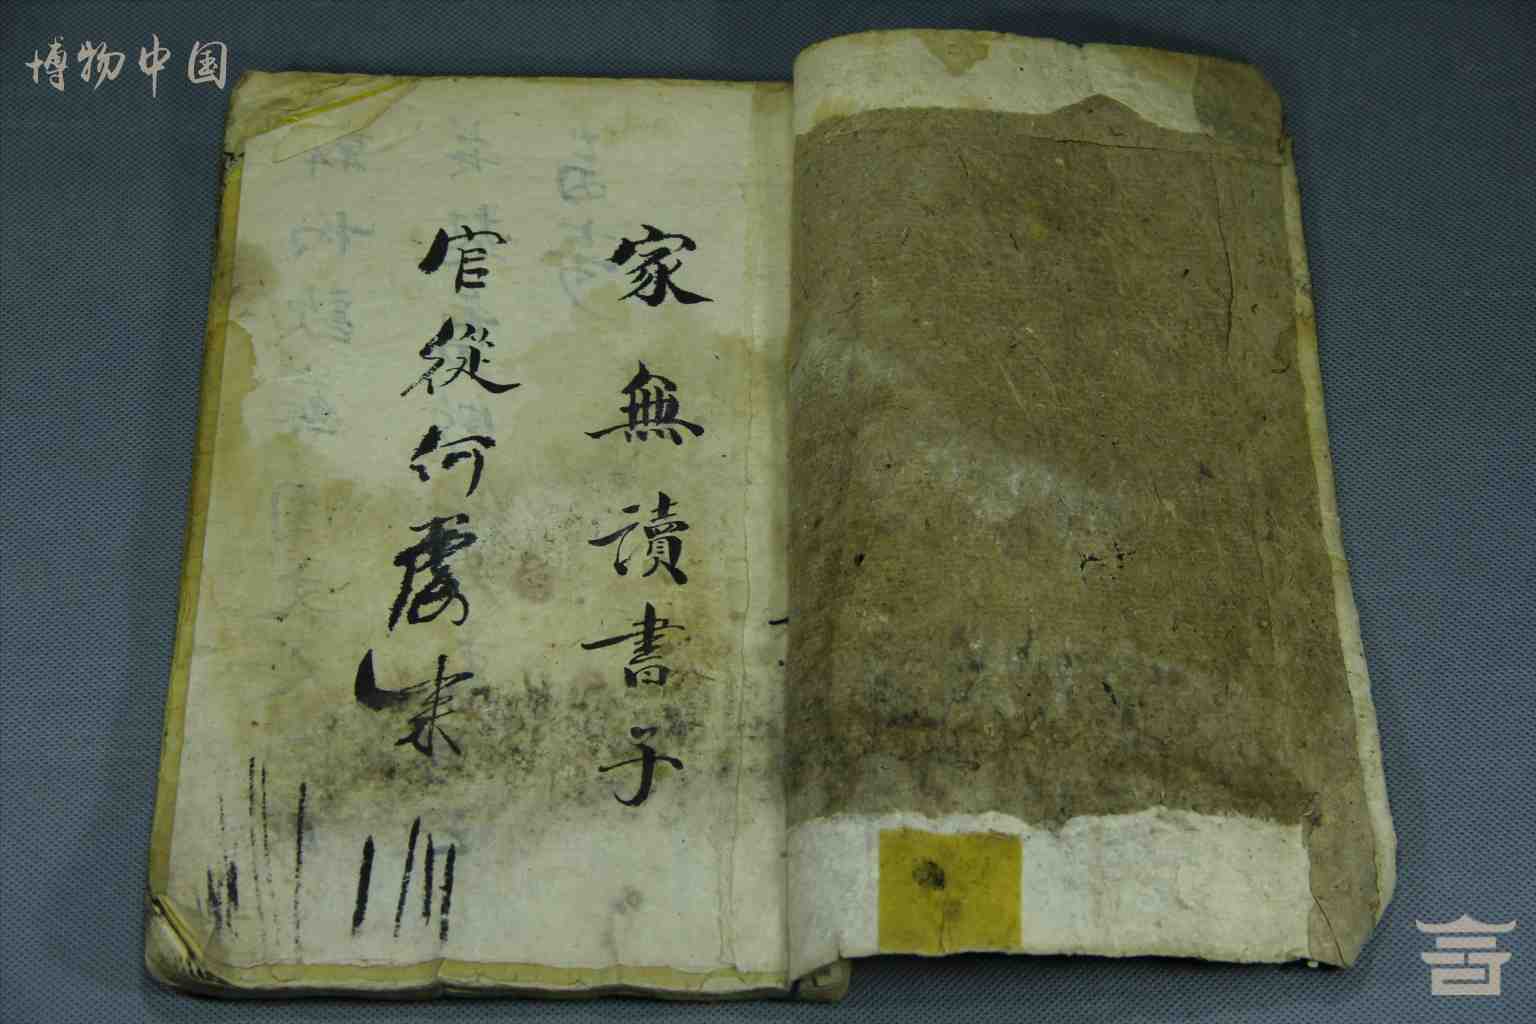 博物中国
家無讀書子
官從何處来